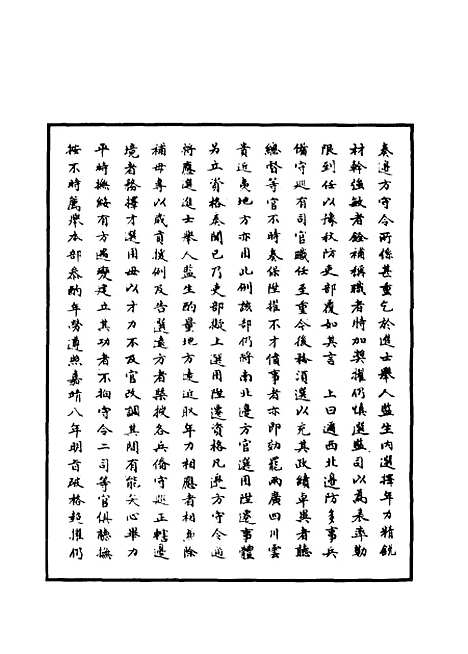 奏邊方守令所係甚重乞於進士舉人監生內選擇年力精銳
材幹強敏者銓補稱職者特加奬擢仍慎選監司以為表率勒
限到任以豫秋防吏部覆如其言　上曰邇西北邊防多事兵
備守巡有司官職任至重今後務須選以充其政績卓異者聽
總督等官不時奏保陞擢不才僨事者亦即劾罷兩廣四川雲
貴近夷地方亦用此例該部仍將南北邊方官選用陞遷事體
另立資格奏聞已乃吏部擬上選用陞遷資格凡邊方守令遇
有應選進士舉人監生酌量地方遠近取年力相應者相兼除
補毋專以咸貢援例及告選遠方者槩授各兵備守巡正轄邊
境者務擇才選用毋以才力不及官改調其間有能矢心畢力
平時撫綏有方遇變建立其功者不拘守令二司等官俱聽撫
按不時薦舉本部參酌年勞遵照嘉靖八年明旨破格超擢仍